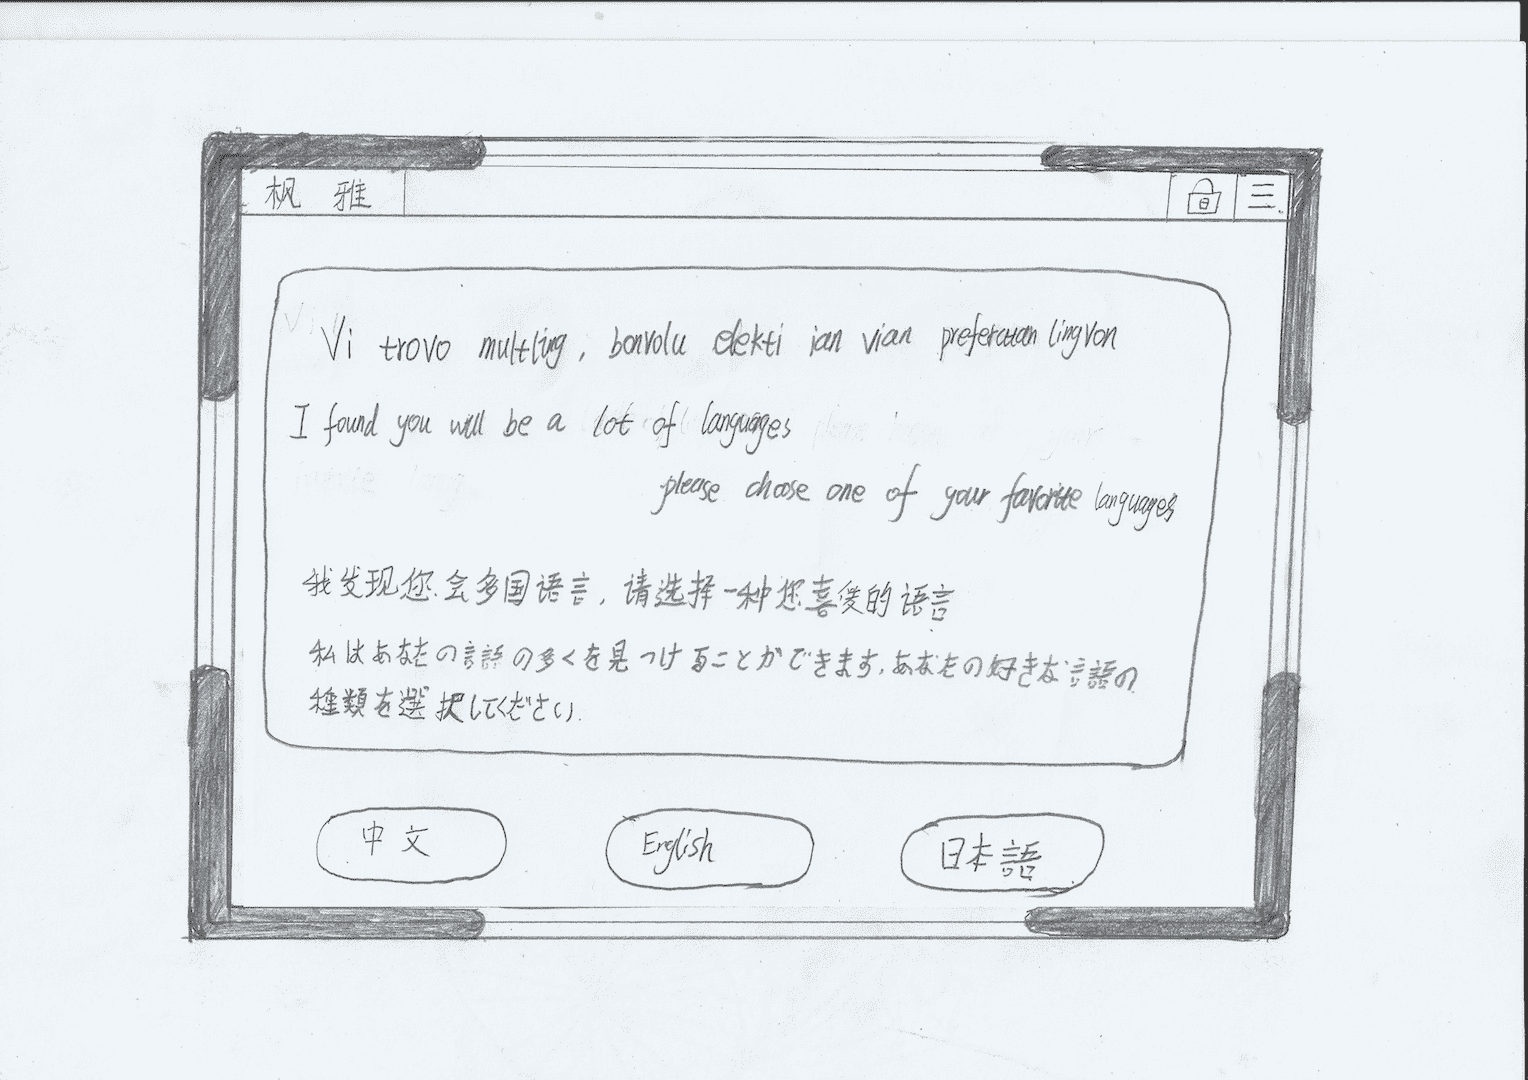 枫 雅
三
Vi trovo multling, bonvolu elekti ian vian preferatan lingvon
I found you will be a lot of languages
please choose one of your favorite languages
我发现您会多国语言，请选择一种您喜爱的语言
私はあなたの言語の多くを見つけることができます,あなたの好きな言語の
種類を選択してください.
中文
English
日本語